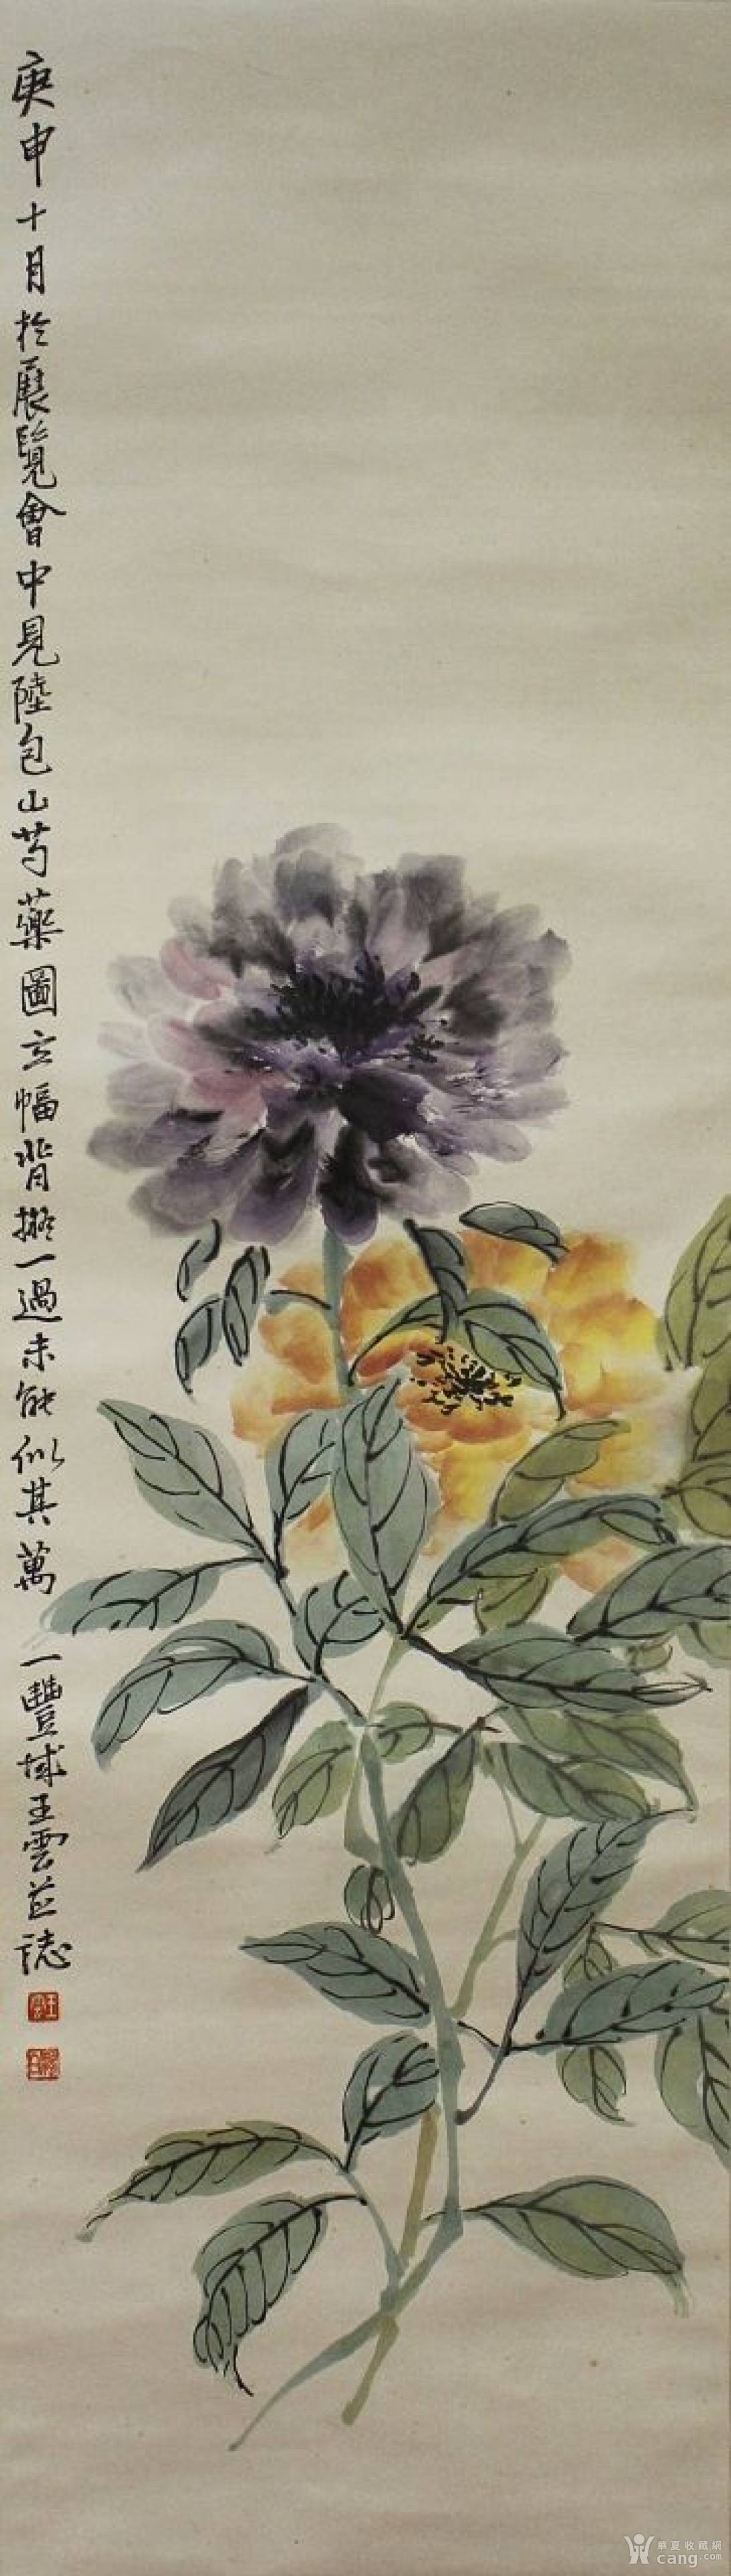 庚申十月於展覽會中見陸包山芍藥圖立幅背擬一過未能似其萬一豐城王雲並誌
王雲
華夏收藏網
cang.com